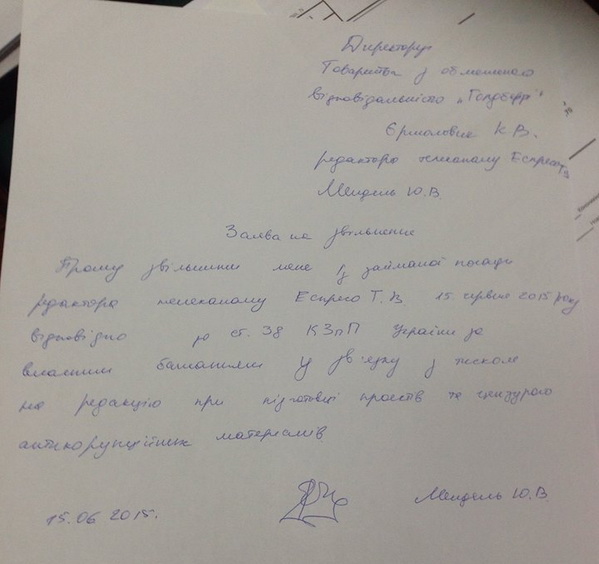 Директору
Товариства з обмеженою
відповідальністю „Голдберрі"
Єрмоловій К В.
редактора телеканалу Еспресо ТВ
Мендель Ю.В.
Заява на звільнення
Прошу звільнити мене із займаної посади
редактора телеканалу Еспресо Т.В. 15 червня 2015 року
відповідно до ст. 38 КЗпП України за
власним бажанням у зв'язку з тиском
на редакцію при підготовці проєктів та цензурою
антикорупційних матеріалів
15.06 2015.
Мендель Ю.В